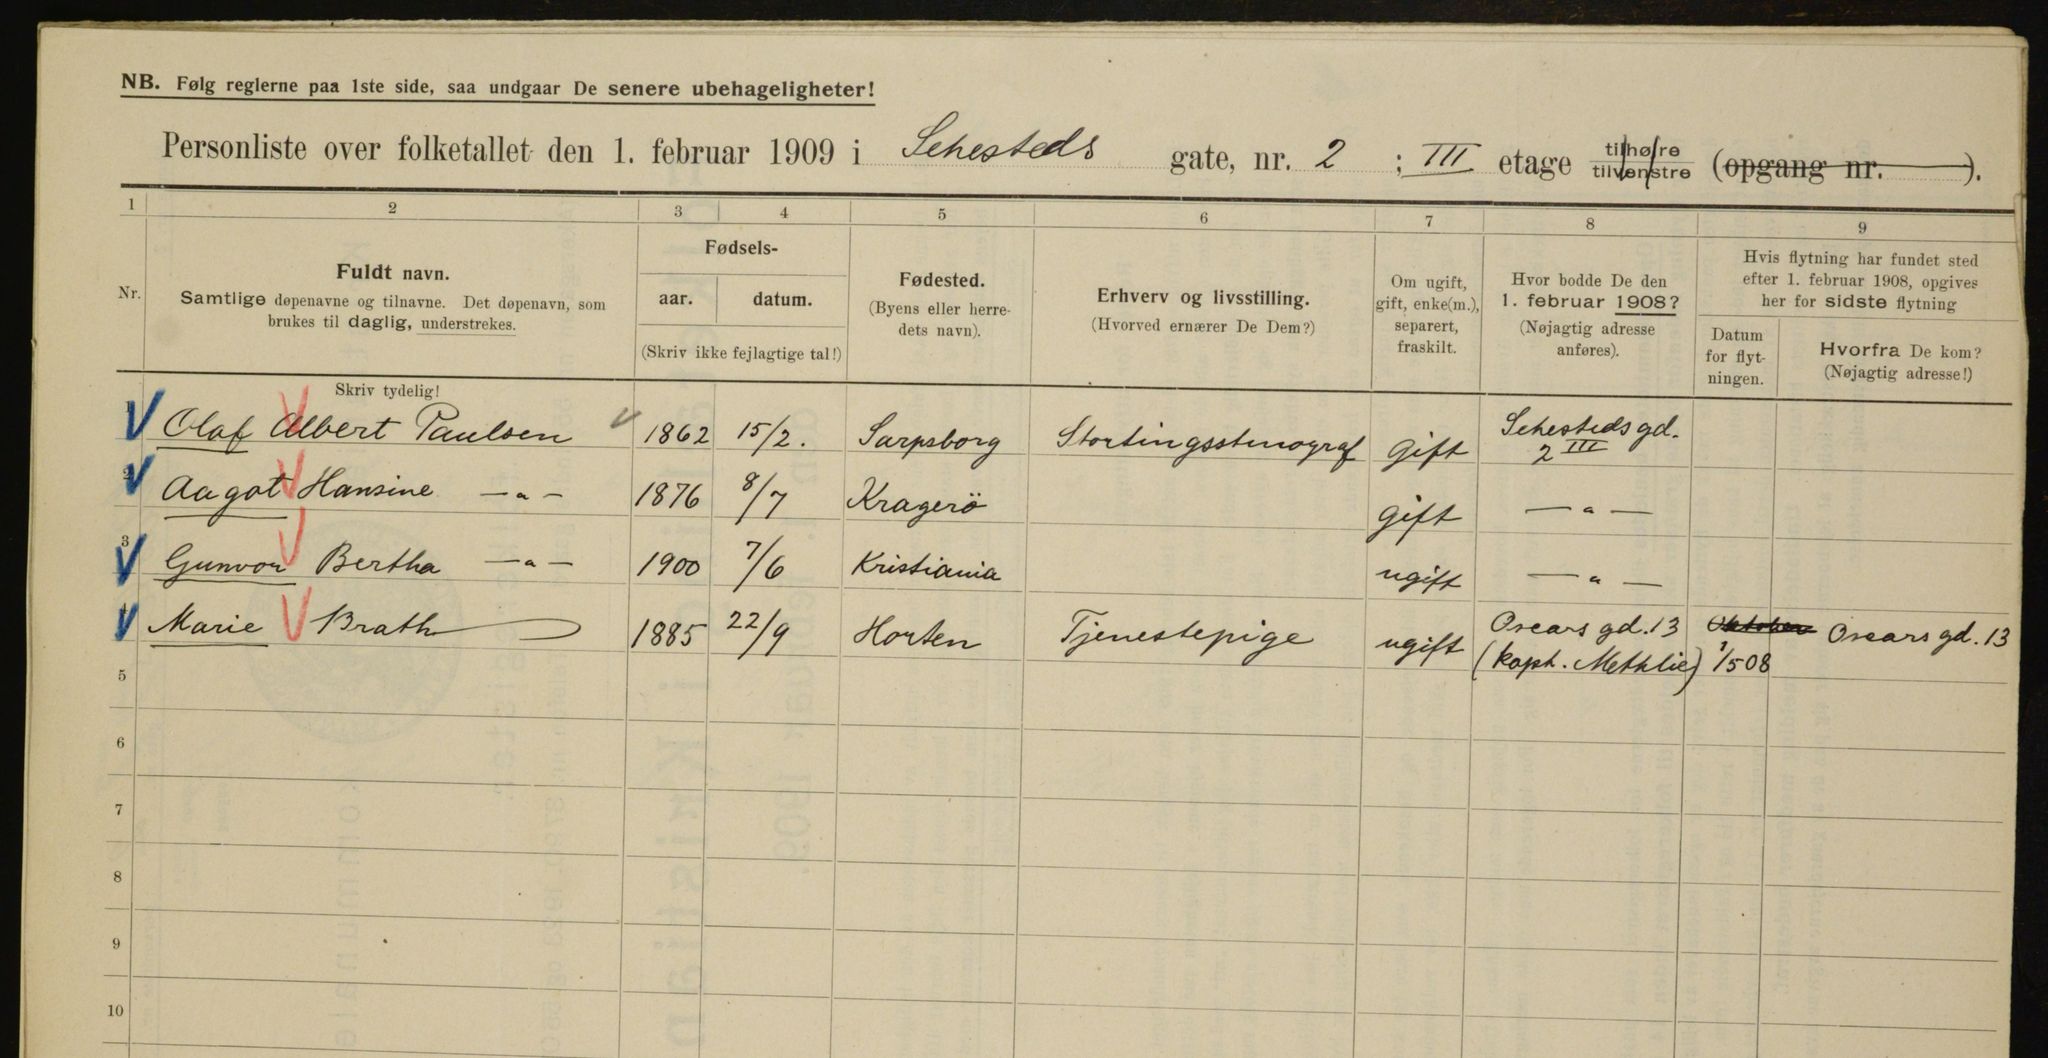 NB. Følg reglerne paa 1ste side, saa undgaar De senere ubehageligheter!
Personliste over folketallet den 1. februar 1909 i Sehesteds gate, nr. 2 ; III etage tilhøire tilvenstre (opgang nr. ).
1 2 3 4 5 6 7 8 9
Nr.
Fuldt navn.
Samtlige døpenavne og tilnavne. Det døpenavn, som
brukes til daglig, understrekes.
Skriv tydelig!
Fødsels-
aar. datum.
(Skriv ikke fejlagtige tal!)
Fødested.
(Byens eller herre-
dets navn).
Erhverv og livsstilling.
(Hvorved ernærer De Dem?)
Om ugift,
gift, enke(m.),
separert,
fraskilt.
Hvor bodde De den
1. februar 1908?
(Nøjagtig adresse
anføres).
Hvis flytning har fundet sted
efter 1. februar 1908, opgives
her for sidste flytning
Datum
for flyt-
ningen.
Hvorfra De kom?
(Nøjagtig adresse!)
1 Olaf Albert Paulsen 1862 15/2. Sarpsborg Stortingsstenograf gift Sehesteds gd.
2 III
2 Aagot Hansine —„— 1876 8/7 Kragerö gift —„—
3 Gunvor Bertha —„— 1900 7/6 Kristiania ugift —„—
4 Marie Brath 1885 22/9 Horten Tjenestepige ugift Oscars gd. 13 Oktober Oscars gd. 13
(kapt. Methlie) 1/5 08
5
6
7
8
9
10